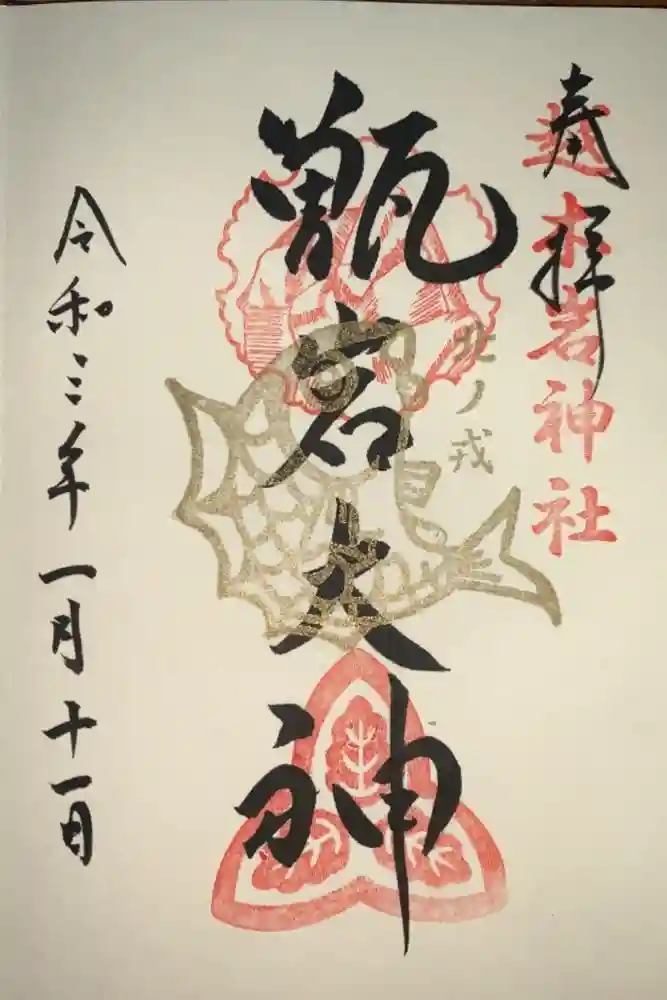 奉拝
越木岩神社
北ノ戎
甑岩大神
令和三年一月十一日